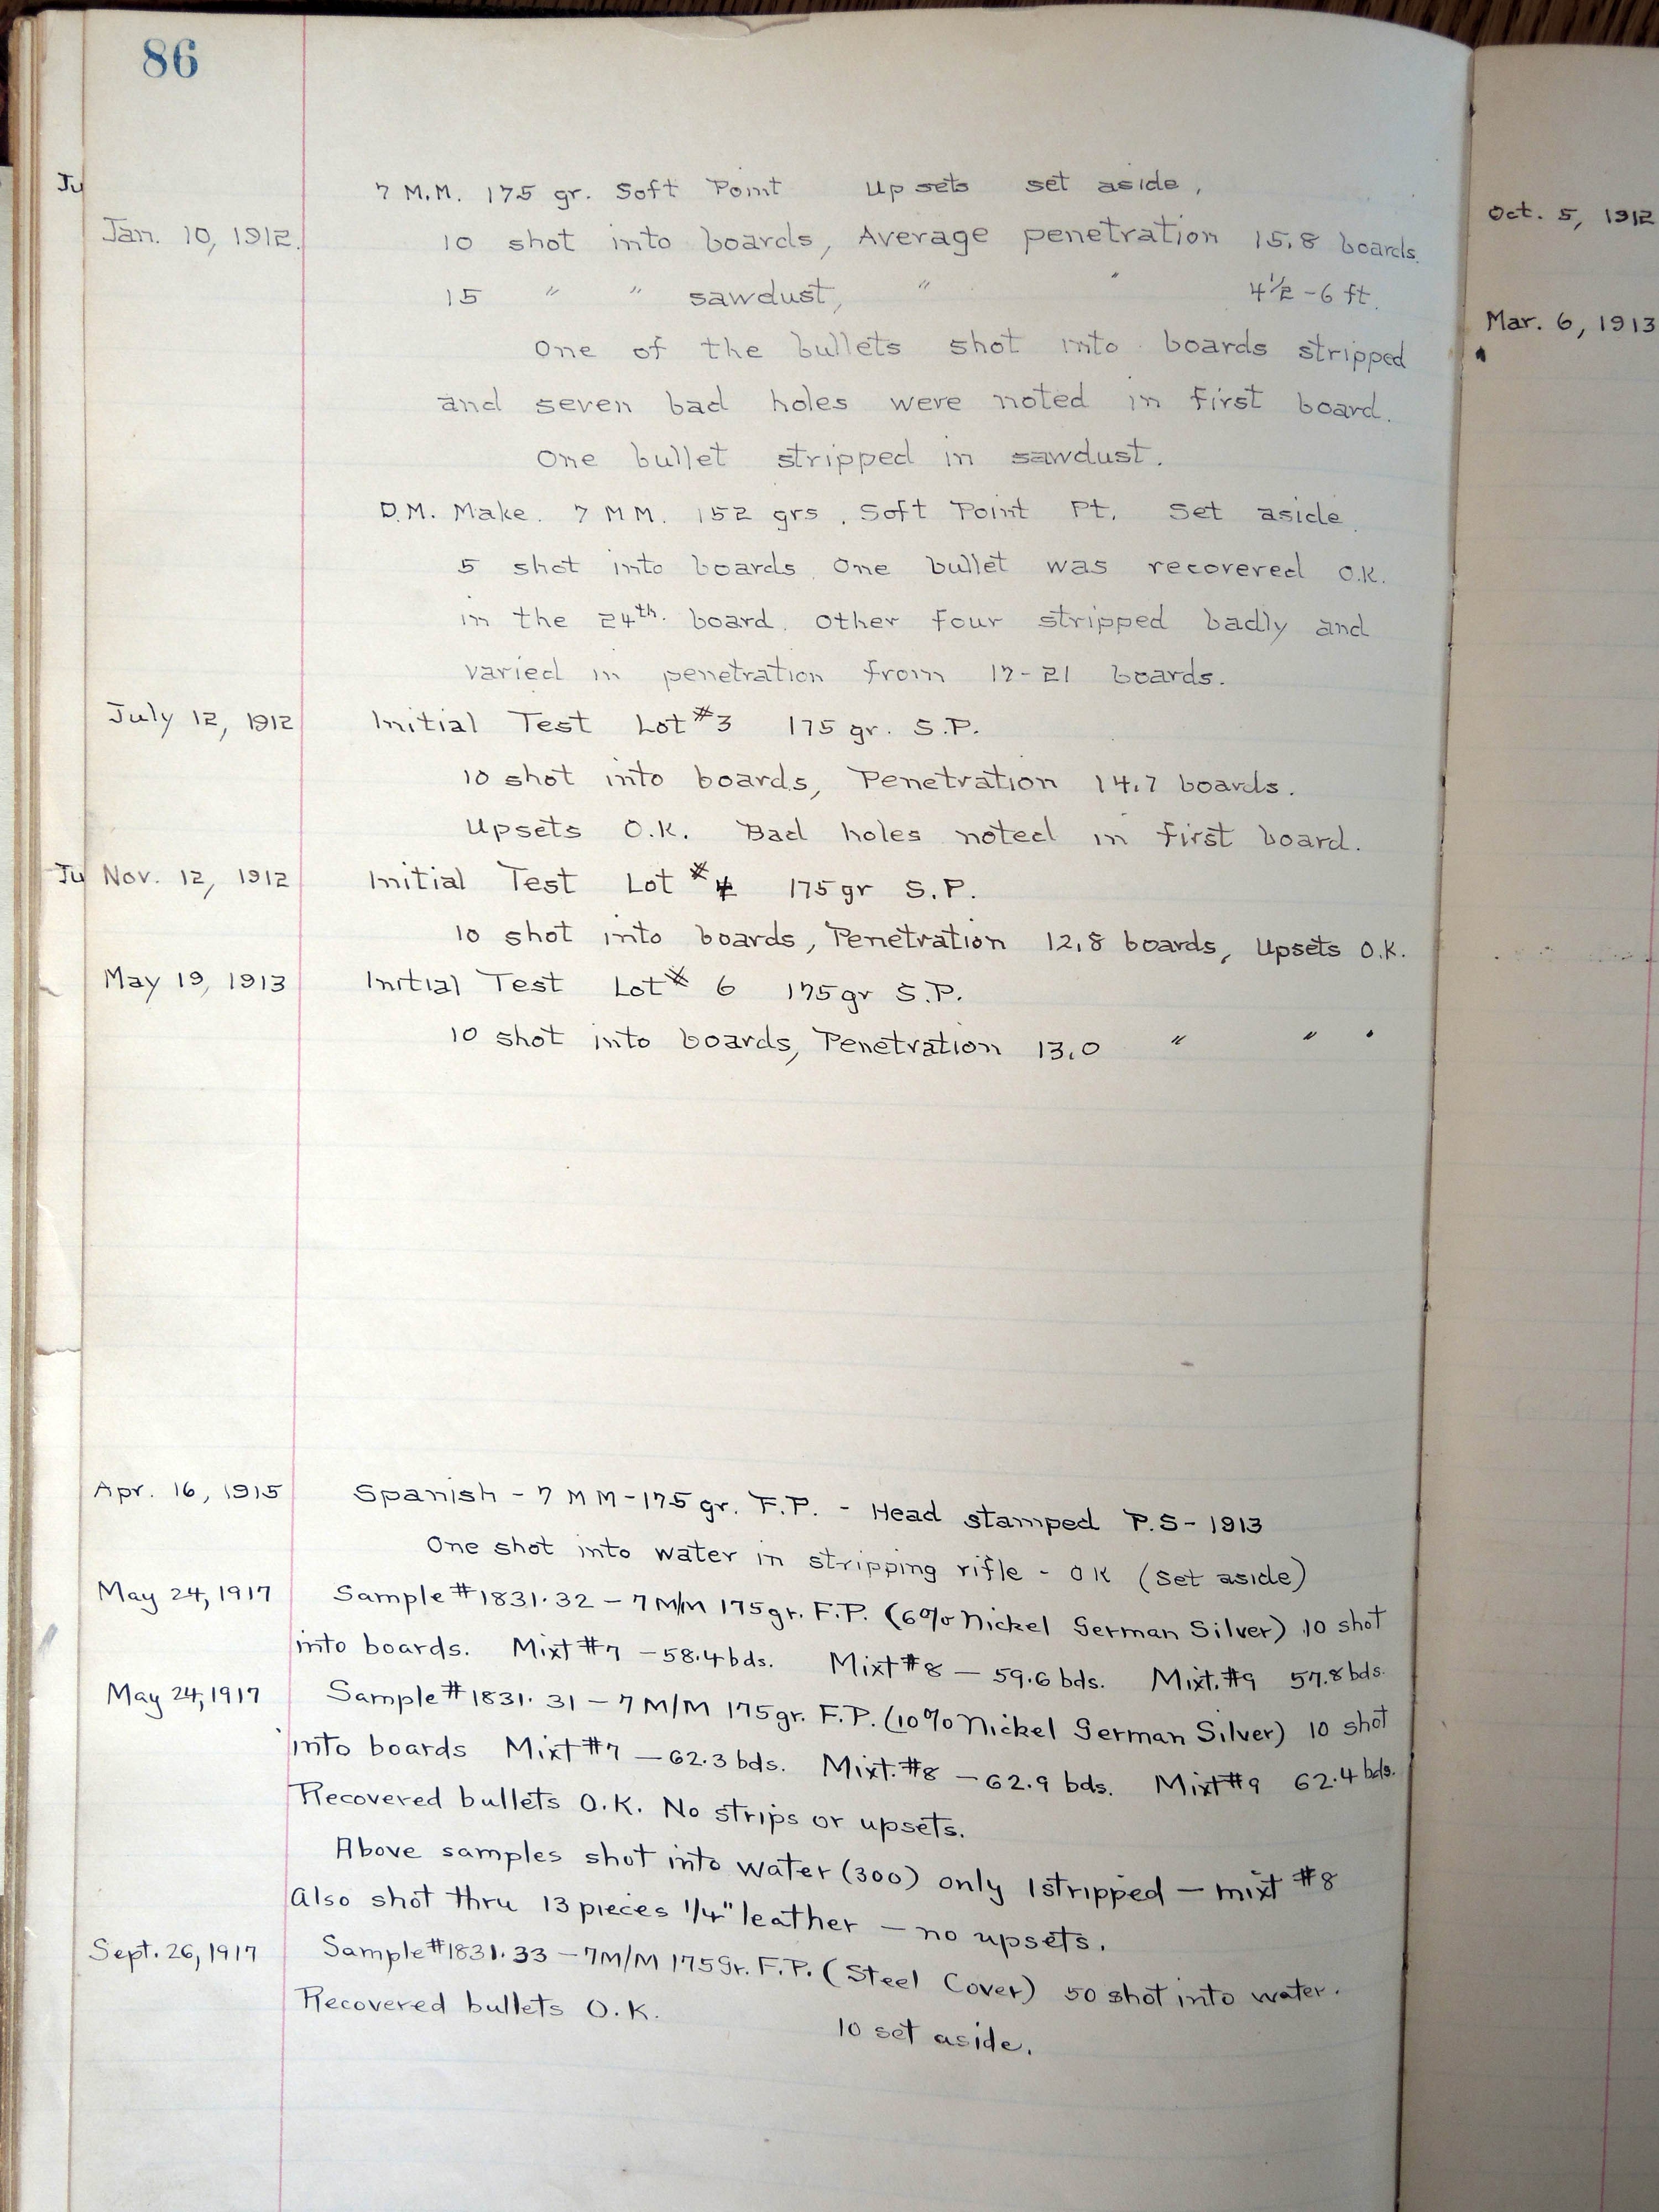 86
Ju
7 M.M. 175 gr. Soft Point Upsets set aside,
Jan. 10, 1912. 10 shot into boards, Average penetration 15.8 boards.
15 " " sawdust, " " 4½-6 ft.
One of the bullets shot into boards stripped
and seven bad holes were noted in first board.
One bullet stripped in sawdust.
D.M. Make. 7 MM. 152 grs. Soft Point Pt. Set aside.
5 shot into boards. One bullet was recovered O.K.
in the 24th. board. Other four stripped badly and
varied in penetration from 17-21 boards.
July 12, 1912 Initial Test Lot #3 175 gr. S.P.
10 shot into boards, Penetration 14.7 boards.
Upsets O.K. Bad holes noted in first board.
Ju
Nov. 12, 1912 Initial Test Lot #4 175 gr S.P.
10 shot into boards, Penetration 12.8 boards, Upsets O.K.
May 19, 1913 Initial Test Lot # 6 175 gr S.P.
10 shot into boards, Penetration 13.0 " " "
Apr. 16, 1915 Spanish - 7 MM - 175 gr. F.P. - Head stamped P.S - 1913
One shot into water in stripping rifle - OK (set aside)
May 24, 1917 Sample #1831.32 - 7 M/M 175 gr. F.P. (6% Nickel German Silver) 10 shot
into boards. Mixt #7 - 58.4 bds. Mixt #8 - 59.6 bds. Mixt. #9 57.8 bds.
May 24, 1917 Sample #1831.31 - 7 M/M 175 gr. F.P. (10% Nickel German Silver) 10 shot
into boards Mixt #7 - 62.3 bds. Mixt. #8 - 62.9 bds. Mixt #9 62.4 bds.
Recovered bullets O.K. No strips or upsets.
Above samples shot into water (300) only 1 stripped - mixt #8
Also shot thru 13 pieces 1/4" leather - no upsets.
Sept. 26, 1917 Sample #1831.33 - 7 M/M 175 Gr. F.P. (Steel Cover) 50 shot into water.
Recovered bullets O.K.
10 set aside.
Oct. 5, 1912
Mar. 6, 1913